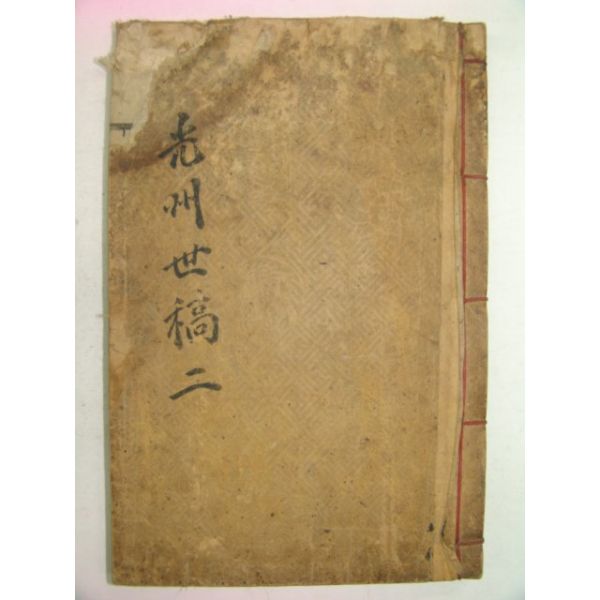 光州世稿 二